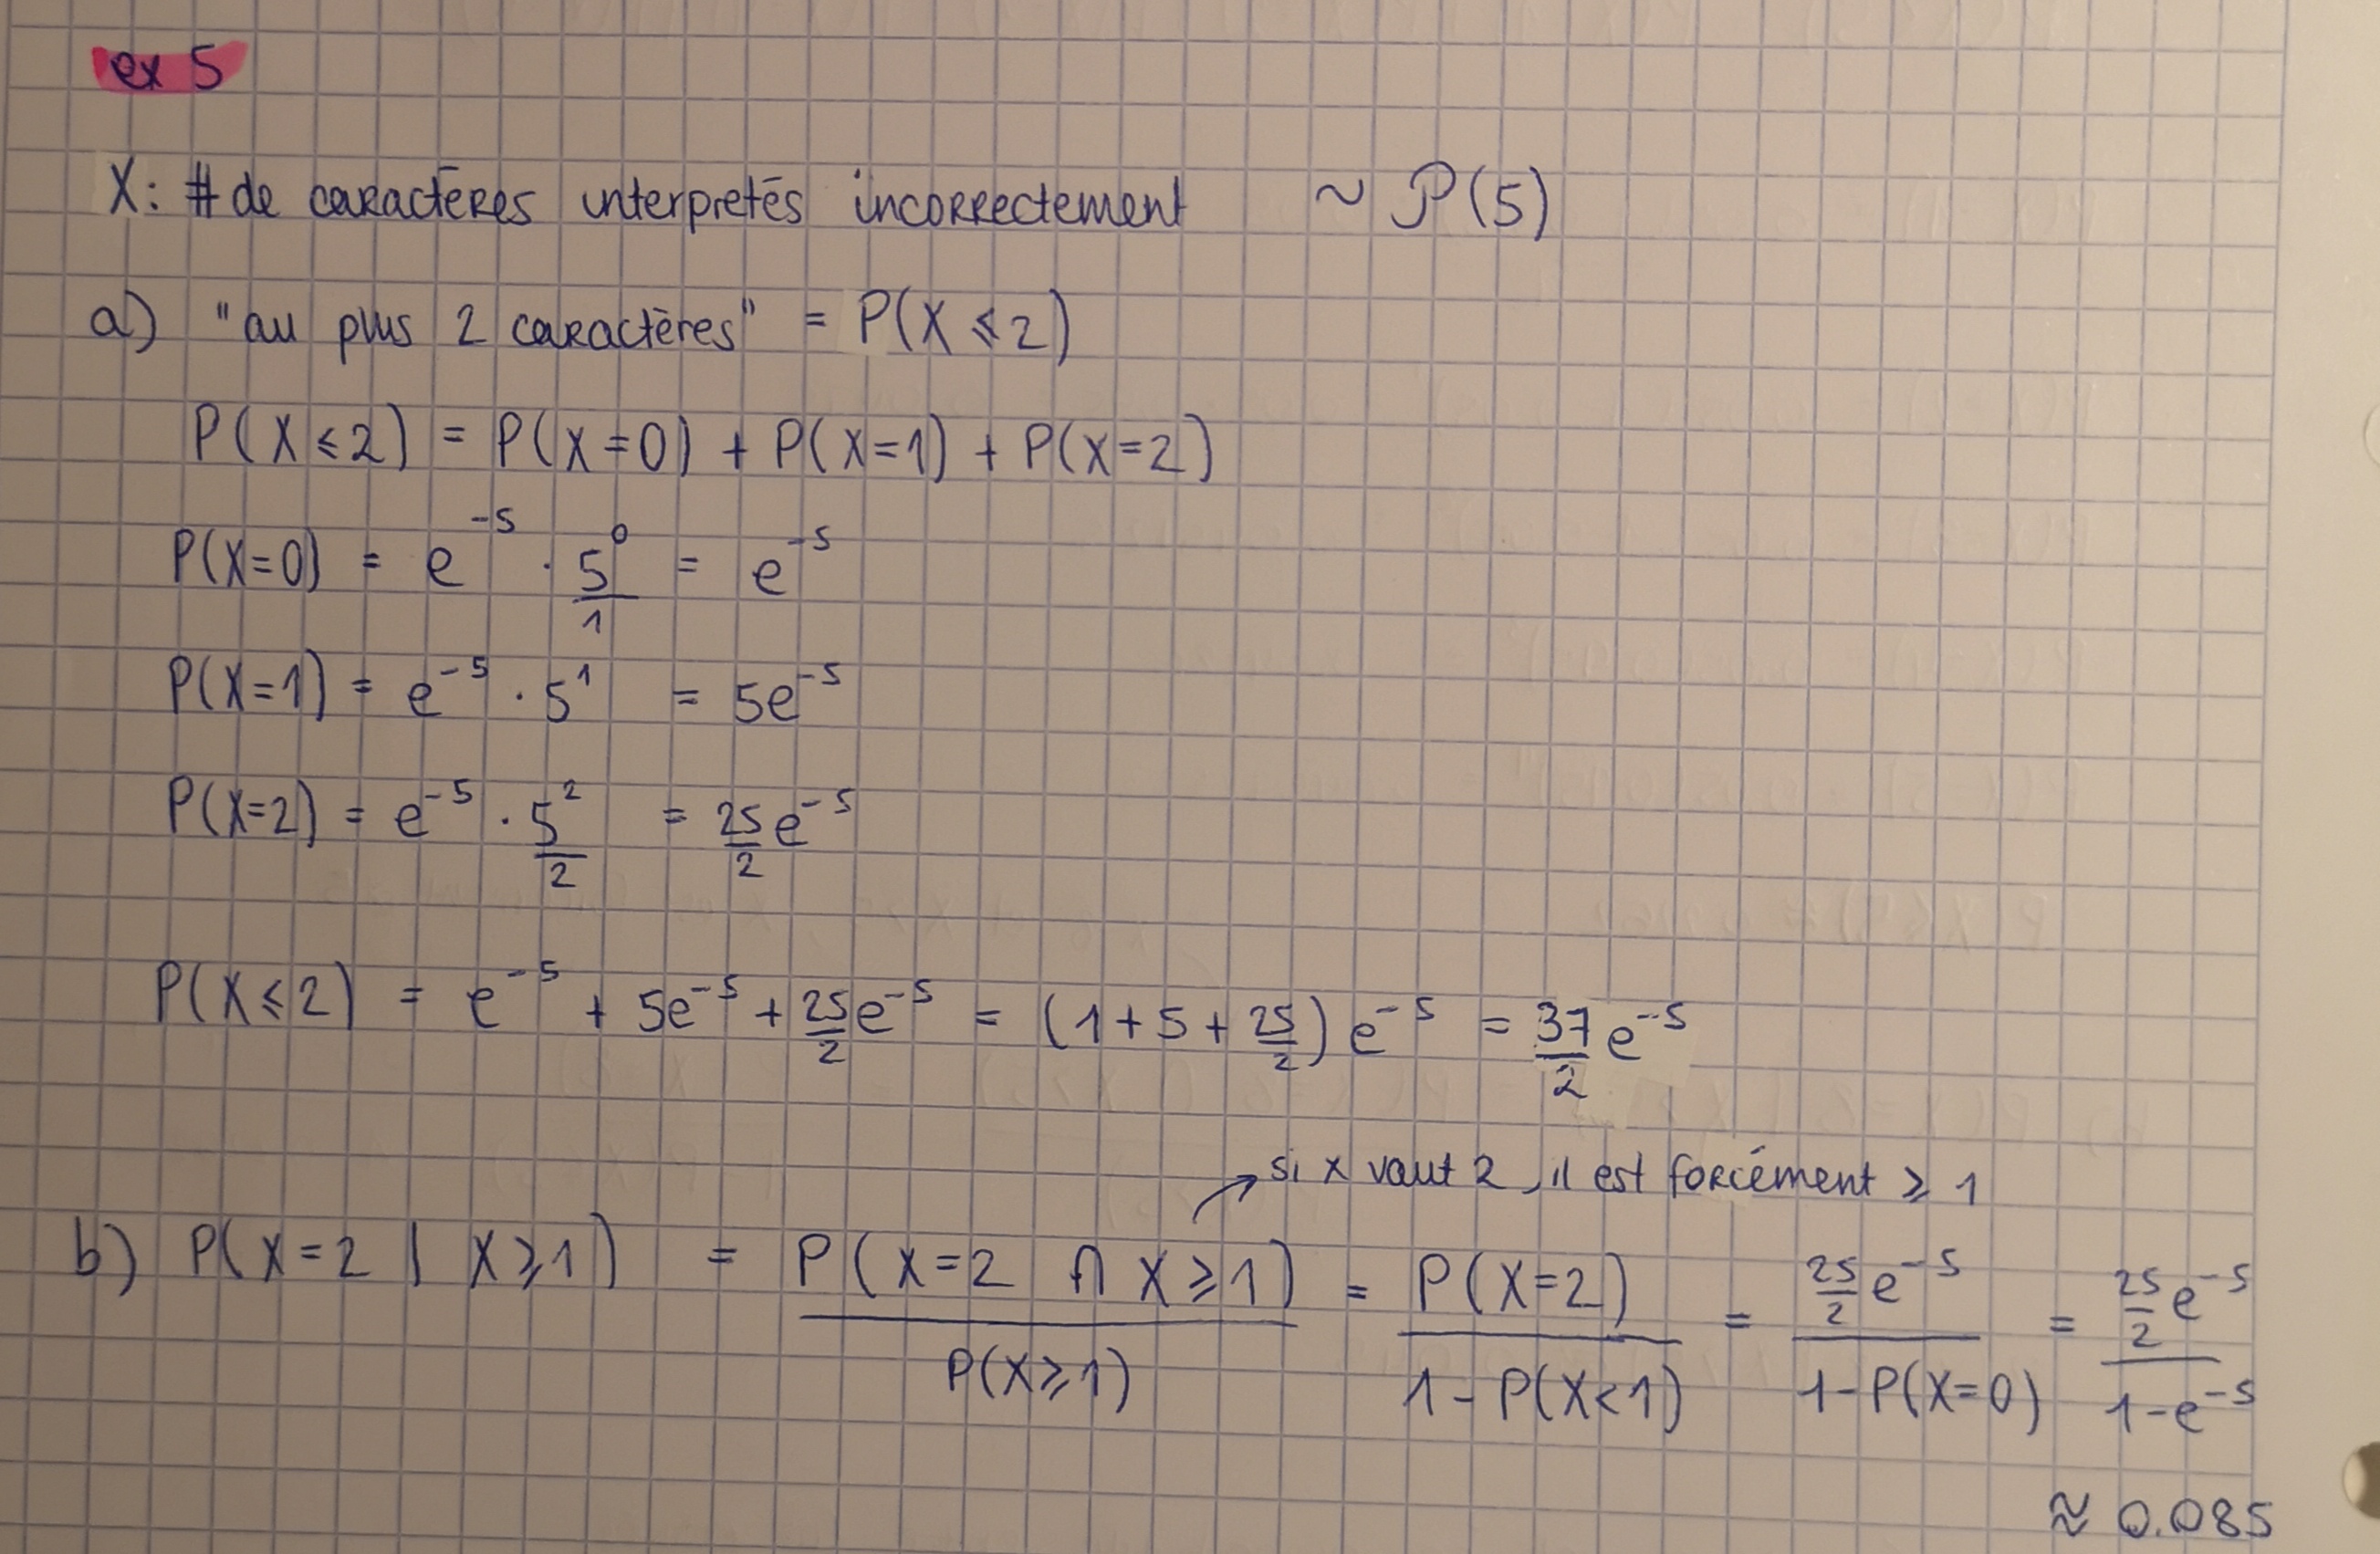 ex 5
X: # de caractères interpretés incorrectement ~ P(5)
a) "au plus 2 caractères" = P(X ⩽ 2)
P(X ⩽ 2) = P(X=0) + P(X=1) + P(X=2)
P(X=0) = e^-5 · 5^0/1 = e^-5
P(X=1) = e^-5 · 5^1 = 5e^-5
P(X=2) = e^-5 · 5^2/2 = 25/2 e^-5
P(X ⩽ 2) = e^-5 + 5e^-5 + 25/2 e^-5 = (1+5+25/2) e^-5 = 37/2 e^-5
→ si x vaut 2, il est forcément ⩾ 1
b) P(X=2 | X⩾1) = P(X=2 ∩ X⩾1)/P(X⩾1) = P(X=2)/(1-P(X<1)) = 25/2 e^-5/(1-P(X=0)) = 25/2 e^-5/(1-e^-5)
≈ 0.085